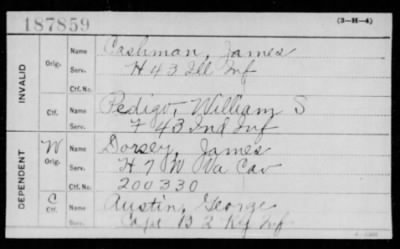 187859
(3-H-4)
INVALID
Orig.
Name Cashman, James
Serv. H 43 Ill Inf
Ctf. No.
Ctf.
Name Pedigo, William S
Serv. F 43 Ind Inf
DEPENDENT
W
Orig.
Name Dorsey, James
Serv. H 7 W Va Cav
Ctf. No. 200330
C
Ctf.
Name Austin, George
Serv. Capt B 2 Ky Inf